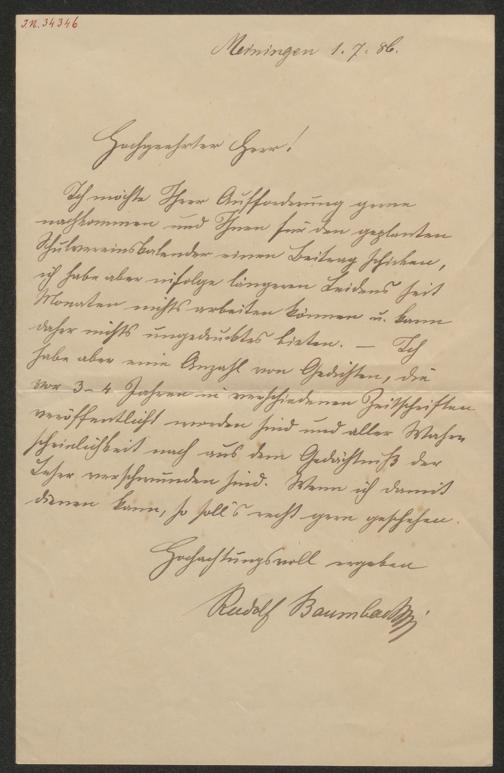 J.N. 34346
Meiningen 1. 7. 86.
Hochgeehrter Herr!
Ich möchte Ihrer Aufforderung gerne
nachkommen und Ihnen für den geplanten
Schulvereinskalender einen Beitrag schicken,
ich habe aber infolge längeren Leidens seit
Monaten nichts arbeiten können u. kann
daher nichts ungedrucktes bieten. — Ich
habe aber eine Anzahl von Gedichten, die
vor 3-4 Jahren in verschiedenen Zeitschriften
veröffentlicht worden sind und aller Wahr-
scheinlichkeit nach aus dem Gedächtniß der
Leser verschwunden sind. Wenn ich damit
dienen kann, so soll's recht gern geschehen.
Hochachtungsvoll ergeben
Rudolf Baumbach